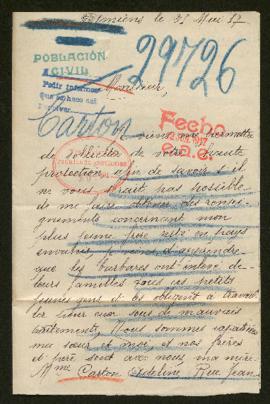 Amiens le 31 Mai 17
29726
POBLACIÓN
CIVIL
Pedir informes
Monsieur,
Carton
Fecha
1917
e.a.c.
Je viens me permettre
de solliciter de votre haute
protection, afin de savoir s'il
ne vous serait pas possible
de me faire obtenir des rensei-
gnements concernant mon
plus jeune fils resté en pays
envahis, je viens d'apprendre
que les barbares ont enlevé de
leurs familles tous ces petits
jeunes gens et les obligent à travail-
ler pour eux sous de mauvais
traitements, Nous sommes rapatriés
ma sœur et moi, et nos frères
et père sont avec nous ma mère
Mme Carton Adeline, Rue Jean